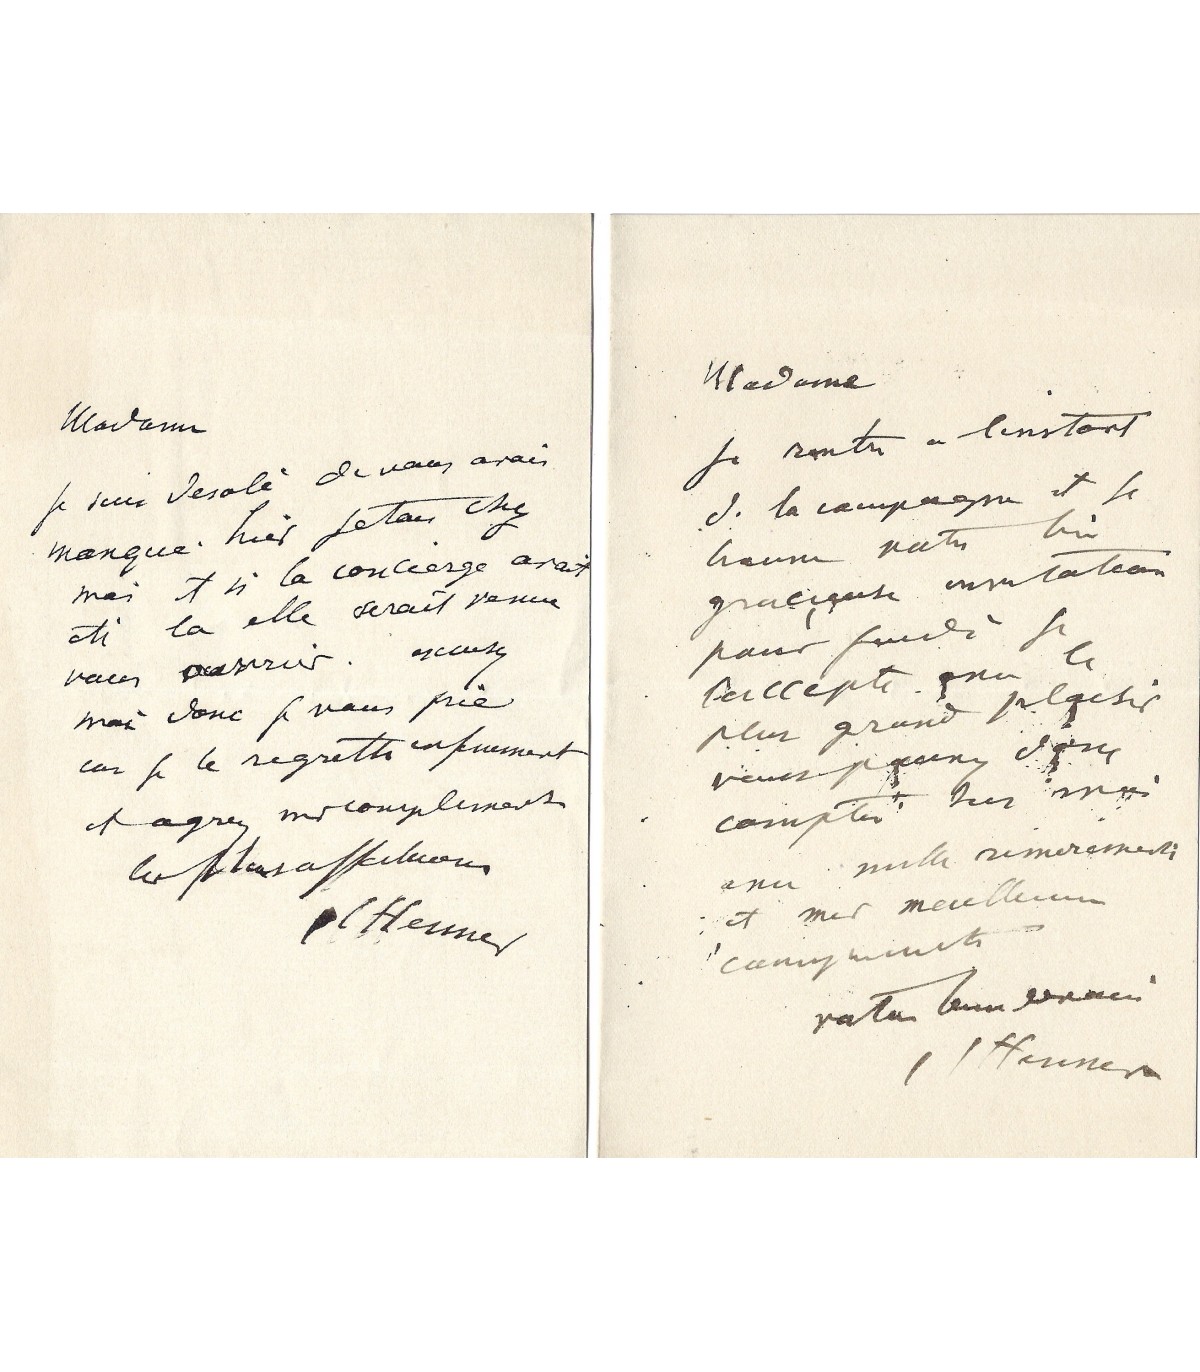 Madame
je suis desolé de vous avoir
manqué. hier jetais chez
moi et si la concierge avait
été la elle serait venue
vous ouvrir. excusez
moi donc je vous prie
car je le regrette infiniment
et agreez mes compliments
les plus affectueux
JJ Henner
Madame
je rentre a linstant
de la campagne et je
trouve votre bien
gracieuse invitation
pour jeudi je
laccepte avec le
plus grand plaisir
vous pouvez donc
compter sur moi
avec mille remerciements
et mes meilleurs
compliments
votre bien devoué
JJ Henner